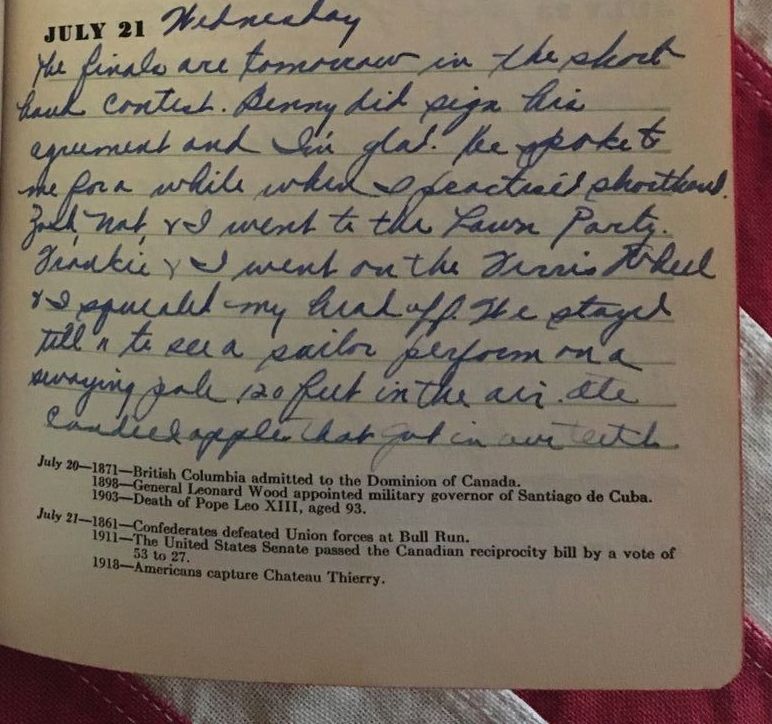 JULY 21 Wednesday
The finals are tomorrow in the short
hand contest. Benny did sign his
agreement and I'm glad. He spoke to
me for a while when I practised shorthand.
Nat, & I went to the Lawn Party.
Frankie & I went on the Ferris Wheel
& I squealed my head off. We stayed
till 11 to see a sailor perform on a
swaying pole 120 feet in the air. Ate
candied apples that got in our teeth
July 20—1871—British Columbia admitted to the Dominion of Canada.
1898—General Leonard Wood appointed military governor of Santiago de Cuba.
1903—Death of Pope Leo XIII, aged 93.
July 21—1861—Confederates defeated Union forces at Bull Run.
1911—The United States Senate passed the Canadian reciprocity bill by a vote of
53 to 27.
1918—Americans capture Chateau Thierry.